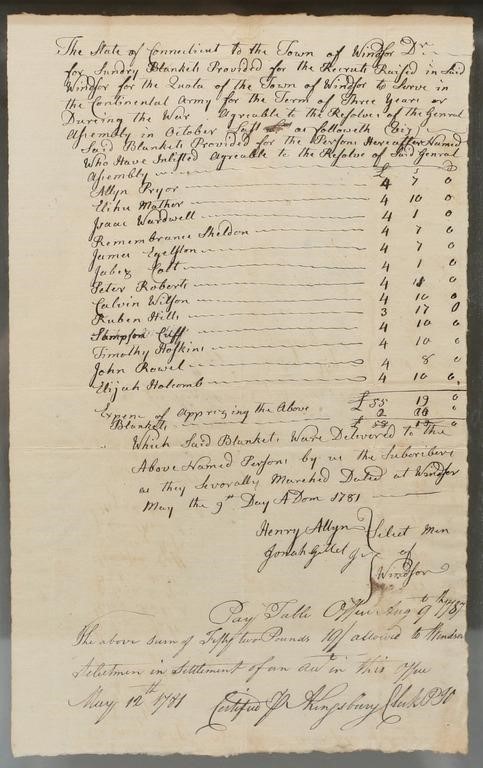 The State of Connecticut to the Town of Windsor Dr
for Sundry Blankets Provided for the Recruits Raised in Said
Windsor for the Quota of the Town of Windsor to Serve in
the Continental Army for the Term of Three Years or
Dureing the War Agreable to the Resolve of the Genral
Assembly in October Last as followeth (Viz)
Said Blankets Provided for the Persons Hereafter Named
Who Have Inlisted Agreable to the Resolve of Said Genral
Assembly £ S D
Allyn Pryor 4 7 0
Elihu Mather 4 10 0
Isaac Wardwell 4 1 0
Remembrance Sheldon 4 7 0
James Egelston 4 7 0
Jabez Colt 4 1 0
Peter Roberts 4 0
Calvin Wilson 4 10 0
Ruben Hills 3 17 0
Sampson Cuff 4 10 0
Timothy Hoskins 4 10 0
John Rowel 4 8 0
Elijah Holcomb 4 10 0
£ 55 19 0
Expence of Apprizing the Above
Blankets £ 2 0
£ 0
Which Said Blankets Ware Delivered to the
Above Named Persons by us the Subcribers
as they Severally Marched Dated at Windsor
May the 9th Day A Dom 1781
Henry Allyn
Jonah Gillet Jr
Select Men
of
Windsor
Pay Table Office Aug 9th 1787
The above Sum of Fifty two Pounds 19/ allowed to Windsor
Selectmen in Settlement of an acct in this Office
May 12th 1781 Certified Pr A Kingsbury Clerk P T O